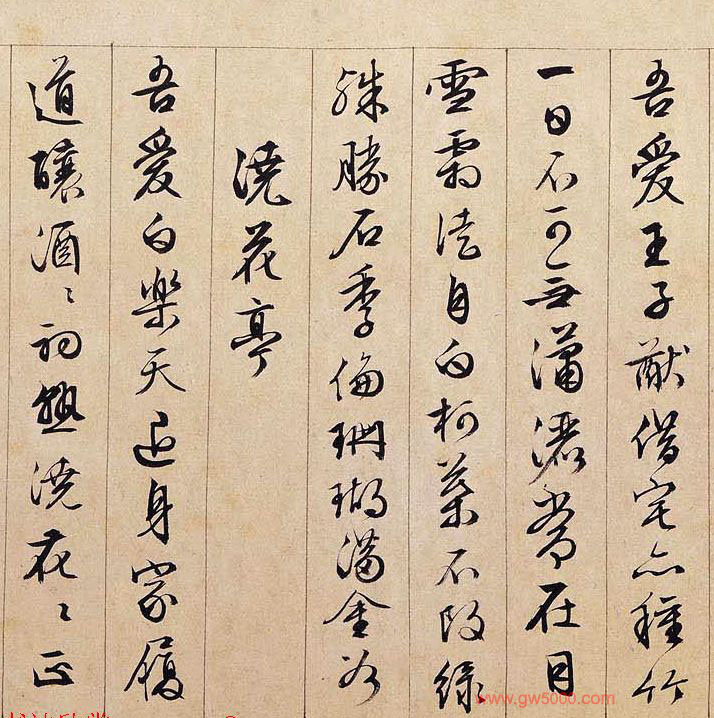 吾爱王子猷借宅亦種竹
一日不可無瀟灑常在目
雪霜徒自白柯葉不改綠
殊勝石季倫珊瑚滿金谷
澆花亭
吾爱白樂天退身家履
道釀酒〻初熟澆花〻正
www.gw5000.com